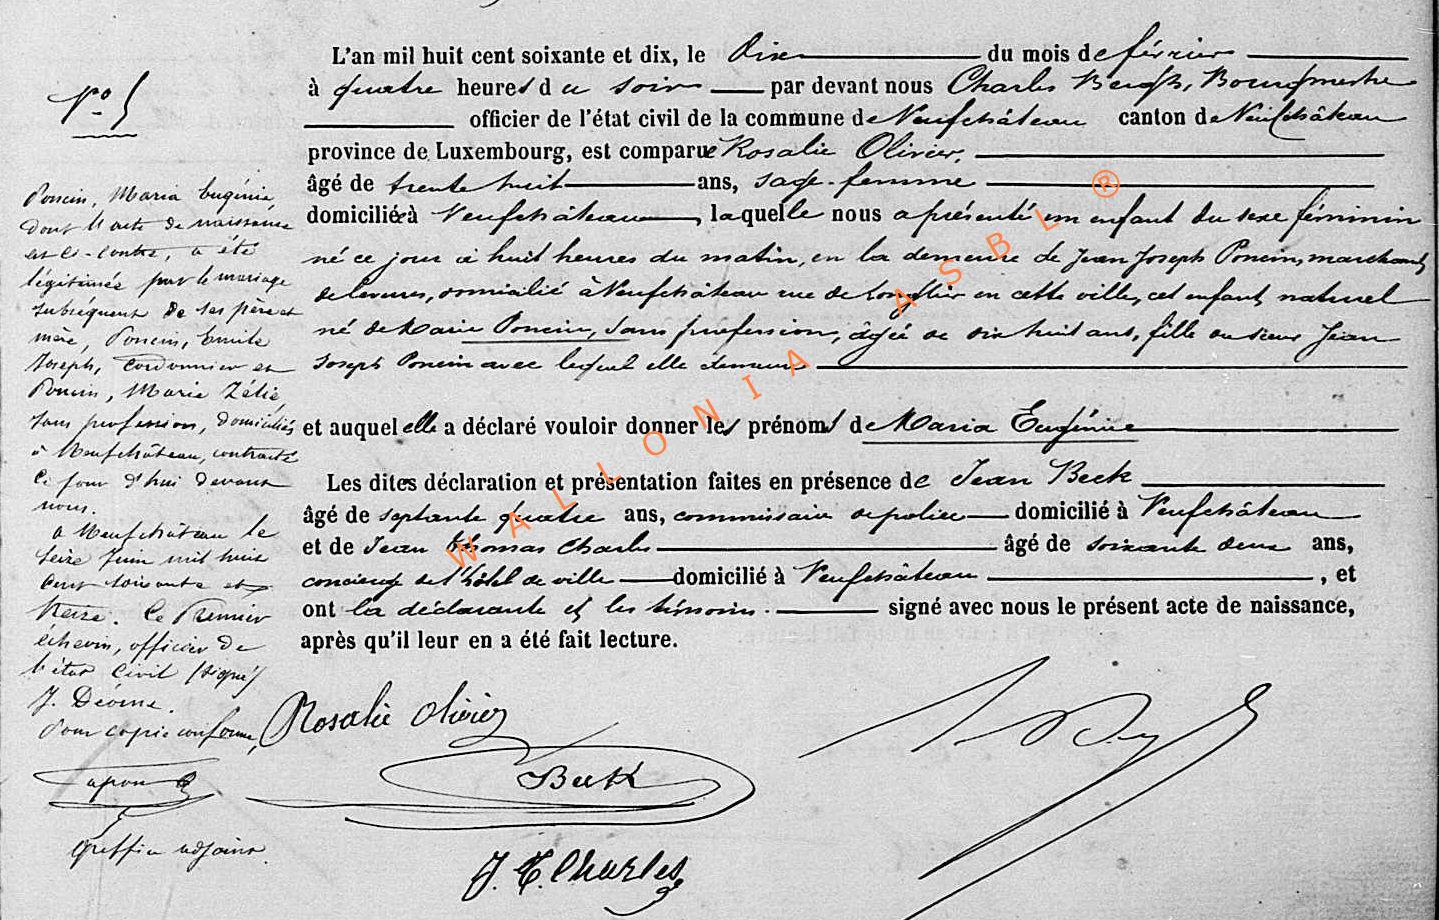 L'an mil huit cent soixante et dix, le dix du mois de février
à quatre heures du soir par devant nous Charles Bergh, Bourgmestre
officier de l'état civil de la commune de Neufchâteau canton de Neufchâteau
province de Luxembourg, est comparue Rosalie Olivier,
âgé de trente huit ans, sage-femme
domiciliée à Neufchâteau, laquelle nous a présenté un enfant du sexe féminin
né ce jour à huit heures du matin, en la demeure de Jean Joseph Poncin, marchand
de levures, domicilié à Neufchâteau rue de Longlier en cette ville, cet enfant, naturel
né de Marie Poncin, sans profession, âgée de dix huit ans, fille du sieur Jean
Joseph Poncin avec lequel elle demeure
et auquel elle a déclaré vouloir donner les prénoms de Maria Eugénie
Les dites déclaration et présentation faites en présence de Jean Beck
âgé de septante quatre ans, commissaire de police domicilié à Neufchâteau
et de Jean Thomas Charles âgé de soixante deux ans,
concierge de l'hôtel de ville domicilié à Neufchâteau , et
ont la déclarante et les témoins signé avec nous le présent acte de naissance,
après qu'il leur en a été fait lecture.
Rosalie Olivier
Beck
J. T. Charles
No 5
Poncin, Maria Eugénie,
dont l'acte de naissance
est ci-contre, a été
légitimée par le mariage
subséquent de ses père et
mère, Poncin, Emile
Joseph, cordonnier et
Poncin, Marie Zélie,
sans profession, domiciliés
à Neufchâteau, contracté
ce jour d'hui devant
nous.
A Neufchâteau le
seize Juin mil huit
cent soixante et
treize. Le Premier
échevin, officier de
l'état civil (signé)
J.
Pour copie conforme,
Greffier adjoint.
WALLONIA ASBL ®